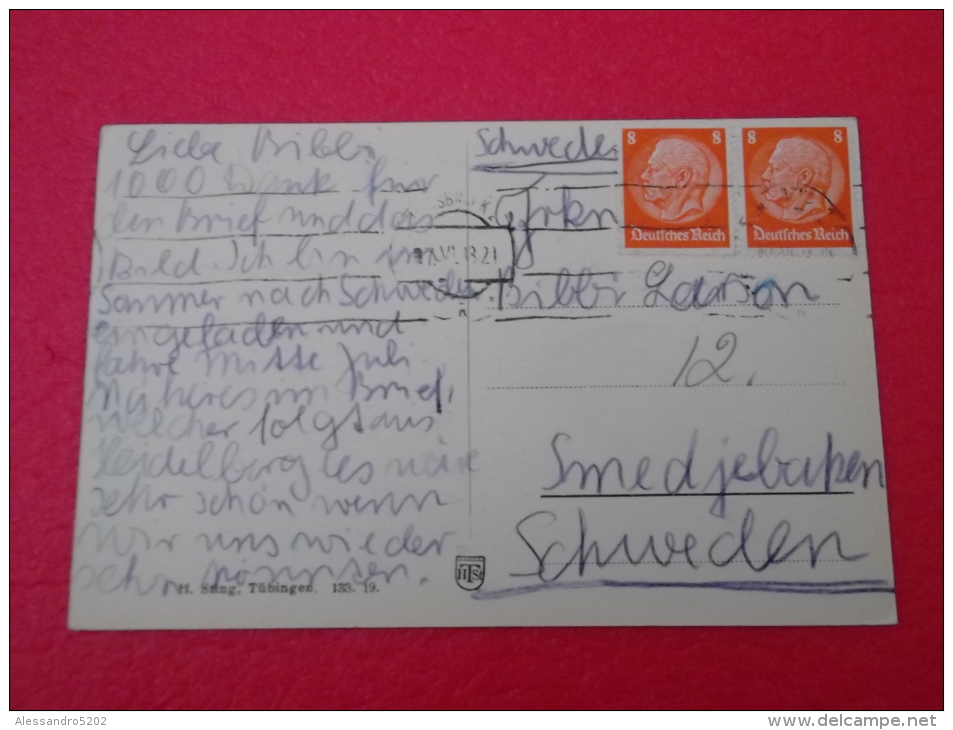 Liebe Bibbi
1000 Dank für
den Brief und das
Bild. Ich bin im
Sommer nach Schweden
eingeladen und
fahre Mitte Juli
Näheres im Brief,
welcher folgt aus
Heidelberg es wäre
sehr schön wenn
wir uns wieder
sehn könnten.
H. Sting, Tübingen. 133. 19.
HSt
Schweden
8 8
Deutsches Reich
8 8
Deutsches Reich
VI. 13.21
Frkn
Bibbi Larson
12.
Smedjebaken
Schweden
Alessandro5202
www.delcampe.net